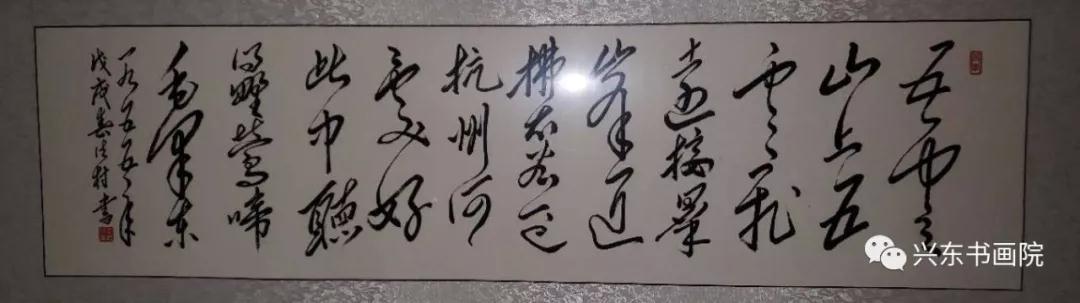 五云
山上五
云飞
远接群
峰近
拂堤若问
杭州何
处好
此中聽
得野莺啼
毛泽东
一九五五年
戊戌春村書
兴东书画院